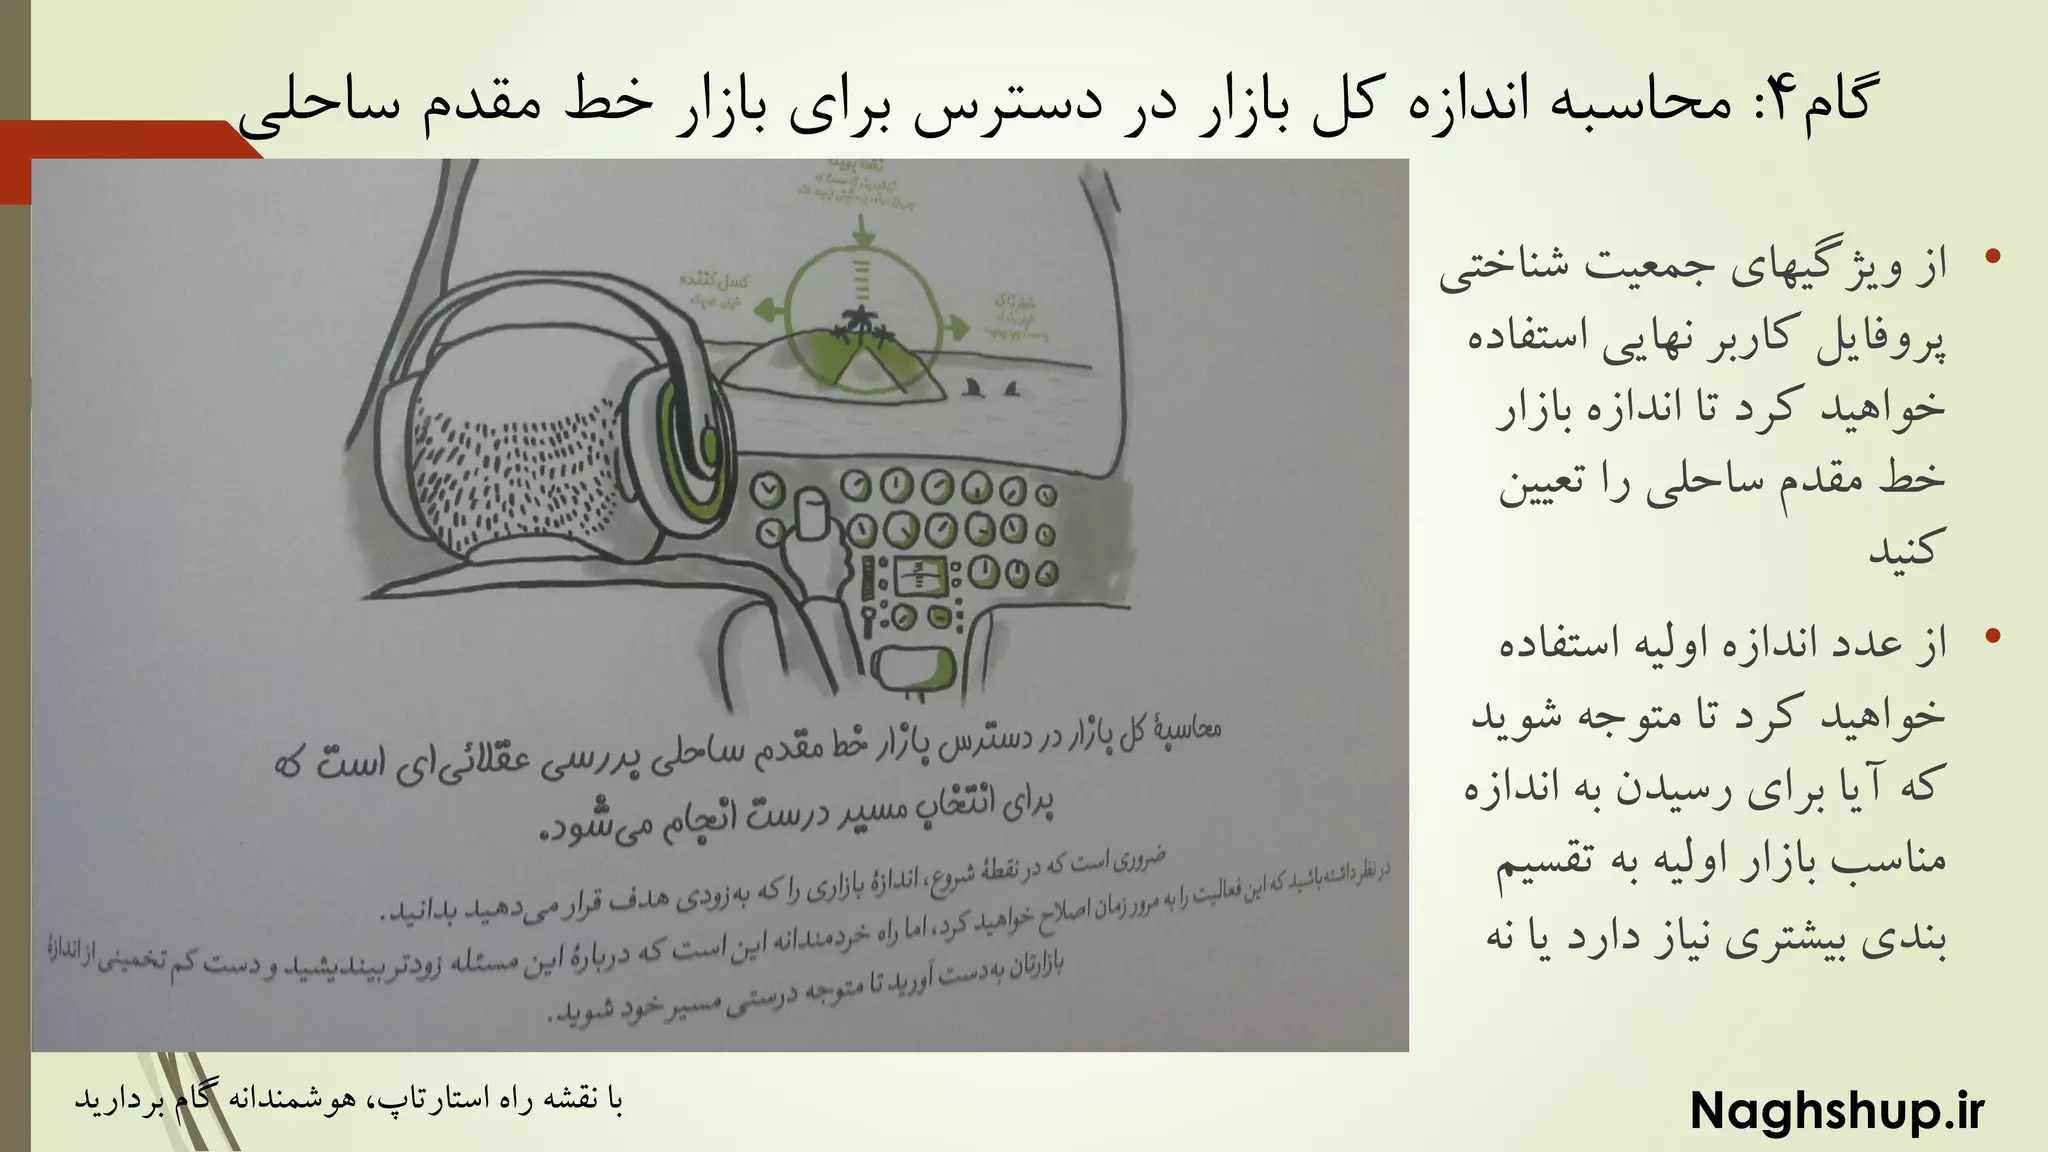 گام۴: محاسبه اندازه کل بازار در دسترس برای بازار خط مقدم ساحلی
• از ویژگیهای جمعیت شناختی
پروفایل کاربر نهایی استفاده
خواهید کرد تا اندازه بازار
خط مقدم ساحلی را تعیین
کنید
• از عدد اندازه اولیه استفاده
خواهید کرد تا متوجه شوید
که آیا برای رسیدن به اندازه
مناسب بازار اولیه به تقسیم
بندی بیشتری نیاز دارد یا نه
کسل‌کننده
محاسبهٔ کل بازار در دسترس بازار خط مقدم ساحلی بررسی عقلائی‌ای است که
برای انتخاب مسیر درست انجام می‌شود.
ضروری است که در نقطهٔ شروع، اندازهٔ بازاری را که به‌زودی هدف قرار می‌دهید بدانید.
در نظر داشته‌باشید که این فعالیت را به مرور زمان اصلاح خواهید کرد، اما راه خردمندانه این است که دربارهٔ این مسئله زودتر بیندیشید و دست کم تخمینی از اندازهٔ
بازارتان به‌دست آورید تا متوجه درستی مسیر خود شوید.
با نقشه راه استارتاپ، هوشمندانه گام بردارید
Naghshup.ir